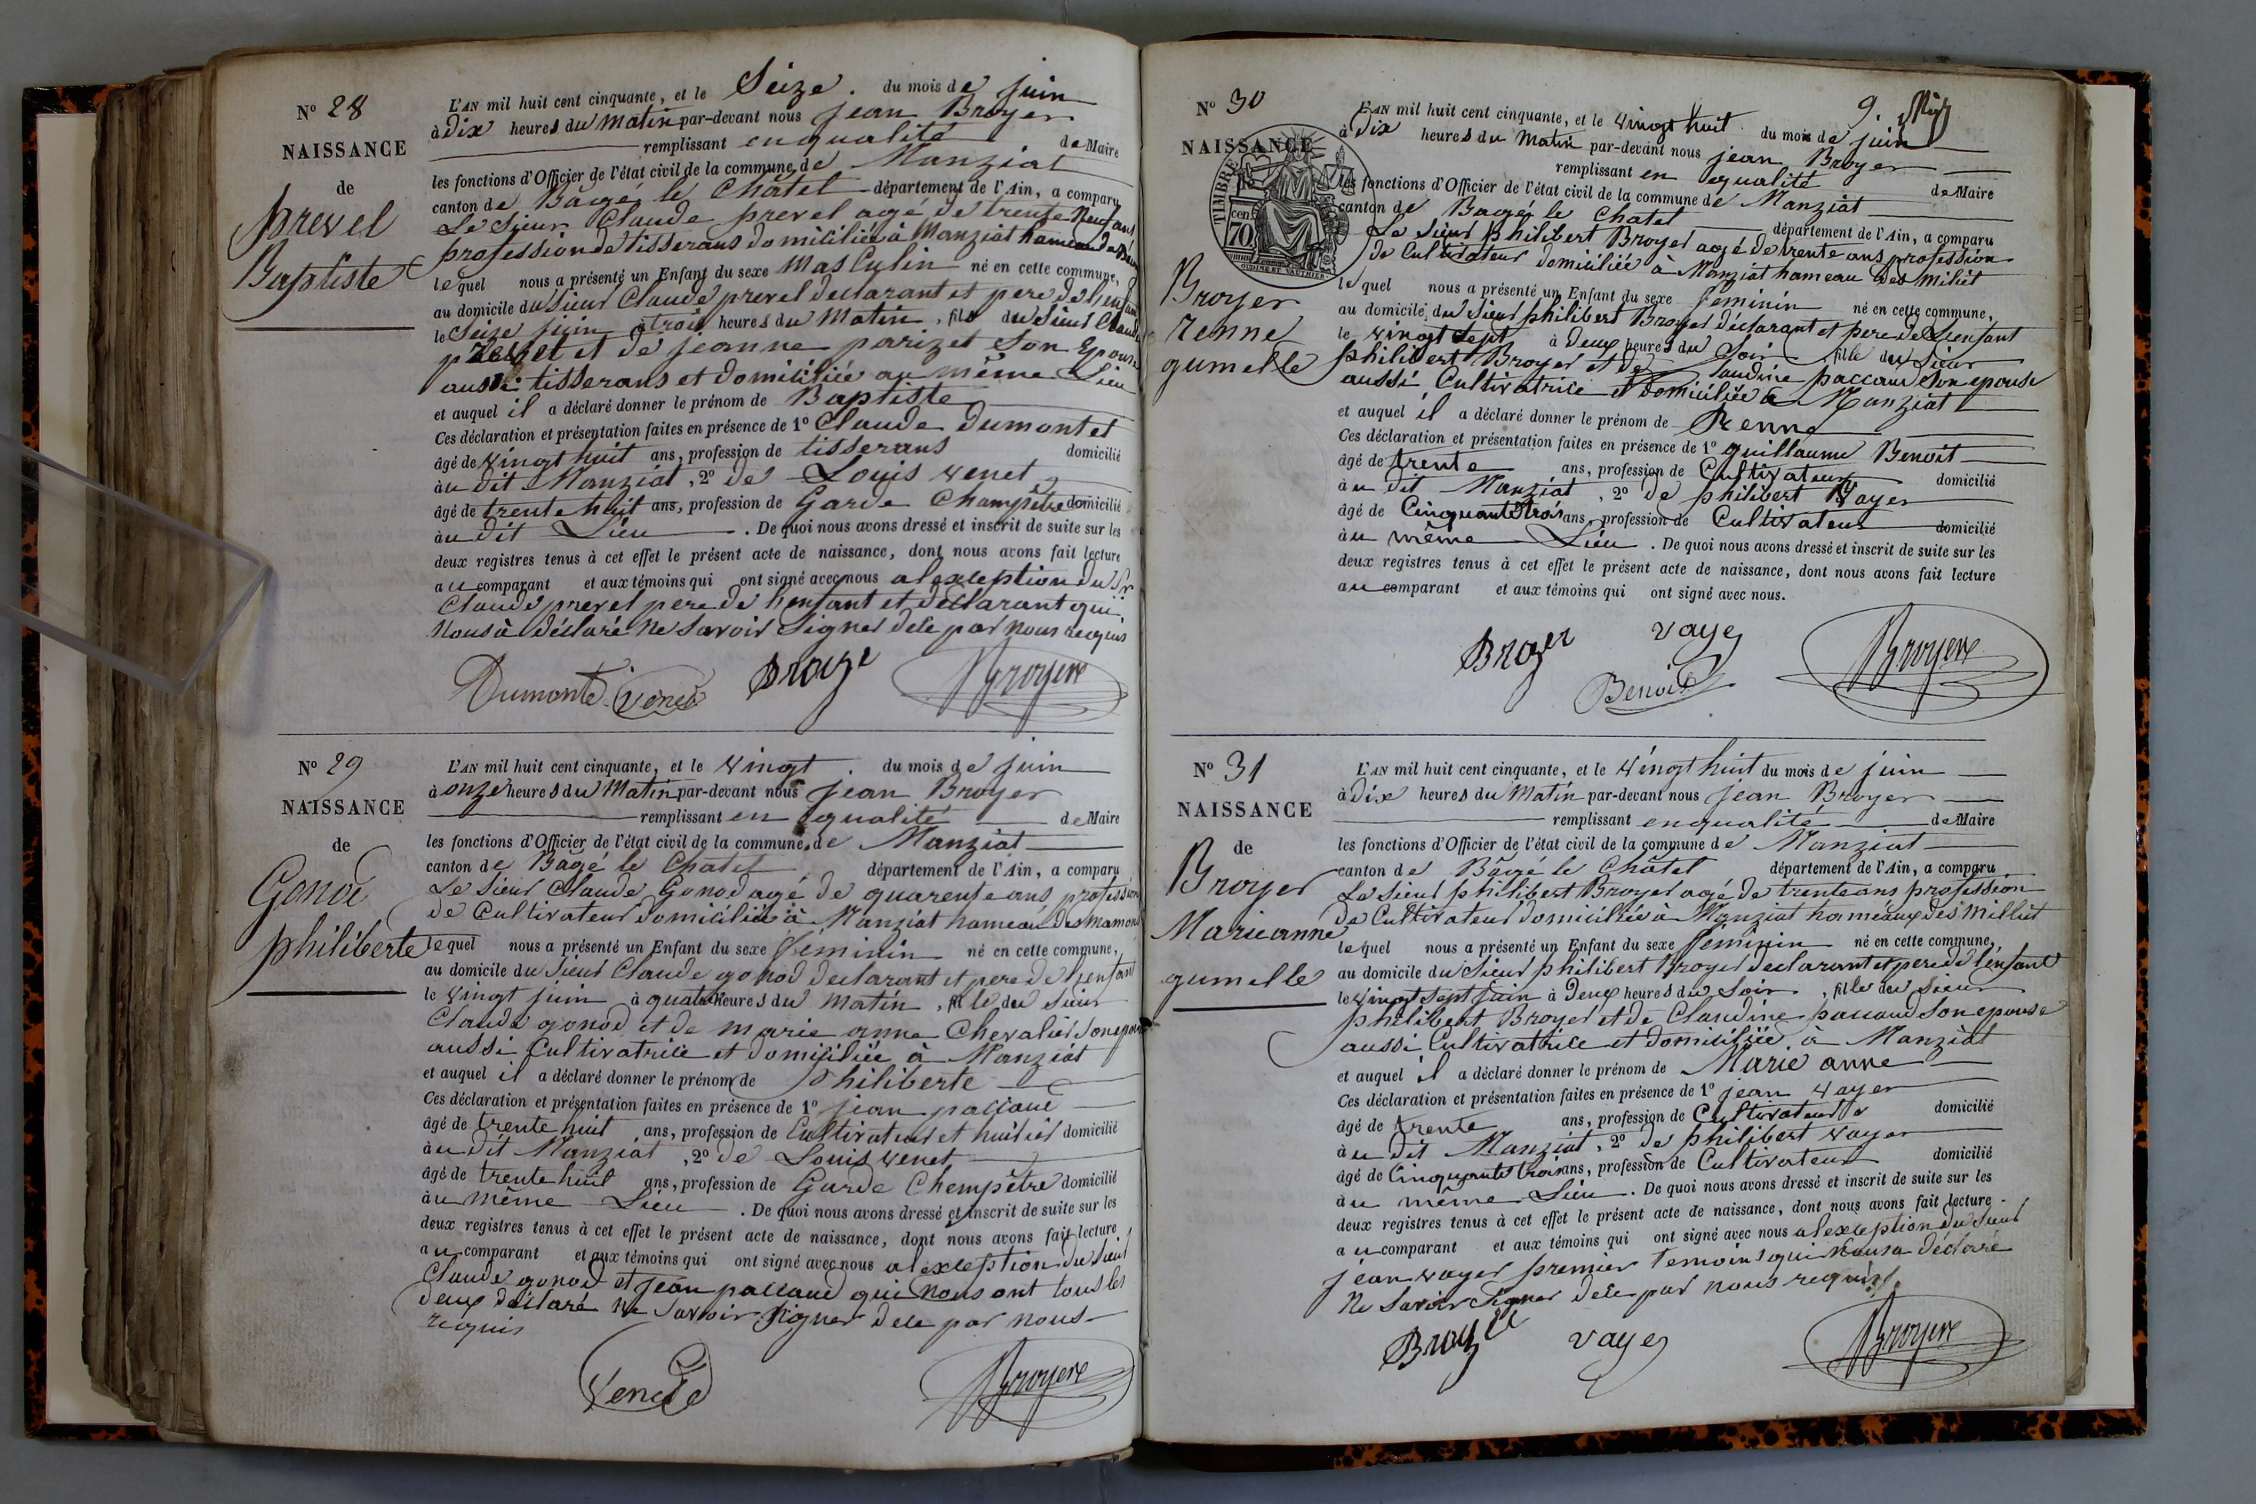 N° 28
NAISSANCE
de
prevel
Baptiste
L'AN mil huit cent cinquante, et le Seize . du mois de juin
à dix heures du Matin par-devant nous jean Broyer
remplissant en qualité de Maire
les fonctions d'Officier de l'état civil de la commune de Manziat
canton de Bâgé le Châtel département de l'Ain, a comparu
Le Sieur Claude prevel agé de trente Neuf ans
profession de tisserans domiciliée à Manziat hameau de
lequel nous a présenté un Enfant du sexe Masculin né en cette commune,
au domicile du Sieur Claude prevel declarant et pere de lenfant
le Seize juin à trois heures du Matin, fils du Sieur Claude
prevel et de jeanne parizet Son Epouse
aussi tisserans et domiciliée au même Lieu
et auquel il a déclaré donner le prénom de Baptiste
Ces déclaration et présentation faites en présence de 1° Claude Dumontet
âgé de vingt huit ans, profession de tisserans domicilié
àu dit Manziat, 2° de Louis venet
âgé de trente huit ans, profession de Garde Champêtre domicilié
àu dit Lieu . De quoi nous avons dressé et inscrit de suite sur les
deux registres tenus à cet effet le présent acte de naissance, dont nous avons fait lecture
au comparant et aux témoins qui ont signé avec nous alexception du Sr
Claude prevel pere de lenfant et declarant qui
Nous à déclaré Ne Savoir Signer dece par nous requis
Broyer Broyer
N° 29
NAISSANCE
de
Gonod
philiberte
L'AN mil huit cent cinquante, et le vingt . du mois de juin
à onze heures du Matin par-devant nous jean Broyer
remplissant en qualité de Maire
les fonctions d'Officier de l'état civil de la commune de Manziat
canton de Bâgé le Chatel département de l'Ain, a comparu
Le Sieur Claude Gonod agé de quarente ans profession
de Cultivateur domiciliée à Manziat hameau des mamons
lequel nous a présenté un Enfant du sexe féminin né en cette commune,
au domicile du Sieur Claude gonod declarant et pere de lenfant
le vingt juin à quatre heures du Matin, fille du Sieur
Claude gonod et de marie anne Chevalier Son epouse
aussi Cultivatrice et domiciliée à Manziat
et auquel il a déclaré donner le prénom de philiberte
Ces déclaration et présentation faites en présence de 1° jean paccaud
âgé de trente huit ans, profession de Cultivateur et domicilié
àu dit Manziat, 2° de Louis venet
âgé de trente huit ans, profession de Garde Chempêtre domicilié
àu même Lieu . De quoi nous avons dressé et inscrit de suite sur les
deux registres tenus à cet effet le présent acte de naissance, dont nous avons fait lecture
au comparant et aux témoins qui ont signé avec nous alexception du Sieur
Claude gonod et jean paccaud qui Nous ont tous les
deux déclaré Ne Savoir Signer dece par nous
requis
Broyer
9.
N° 30
NAISSANCE
de
TIMBRE
cen
70
Broyer
renne
gumelle
L'AN mil huit cent cinquante, et le vingt huit du mois de juin
à Dix heures du Matin par-devant nous jean Broyer
remplissant en qualité de Maire
les fonctions d'Officier de l'état civil de la commune de Manziat
canton de Bagé le Chatel département de l'Ain, a comparu
Le Sieur philibert Broyer agé de trente ans profession
de Cultivateur domiciliée à Manziat hameau des Miliet
lequel nous a présenté un Enfant du sexe feminin né en cette commune,
au domicile du Sieur philibert Broyer déclarant et pere de Lenfant
le vingt Sept à Deux heures du Soir fille du Sieur
philibert Broyer et de Claudine paccaud Son epouse
aussi Cultivatrice et domiciliée à Manziat
et auquel il a déclaré donner le prénom de Renne
Ces déclaration et présentation faites en présence de 1° guillaume Benoit
âgé de trente ans, profession de Cultivateur domicilié
àu dit Manziat, 2° de philibert Vayer
âgé de Cinquante trois ans, profession de Cultivateur domicilié
àu même Lieu . De quoi nous avons dressé et inscrit de suite sur les
deux registres tenus à cet effet le présent acte de naissance, dont nous avons fait lecture
au comparant et aux témoins qui ont signé avec nous.
Broyer vayer Broyer
Benoit
N° 31
NAISSANCE
de
Broyer
Marie anne
gumelle
L'AN mil huit cent cinquante, et le vingt huit du mois de juin
à dix heures du Matin par-devant nous jean Broyer
remplissant en qualité de Maire
les fonctions d'Officier de l'état civil de la commune de Manziat
canton de Bâgé le Châtel département de l'Ain, a comparu
Le Sieur philibert Broyer agé de trente ans profession
de Cultivateur domiciliée à Manziat haméaux des Milliet
lequel nous a présenté un Enfant du sexe féminin né en cette commune,
au domicile du Sieur philibert Broyer declarant et pere de lenfant
le vingt Sept juin à Deux heures du Soir, fille du Sieur
philibert Broyer et de Claudine paccaud Son epouse
aussi Cultivatrice et domiciliée à Manziat
et auquel il a déclaré donner le prénom de Marie anne
Ces déclaration et présentation faites en présence de 1° jean vayer
âgé de trente ans, profession de Cultivateur domicilié
àu dit Manziat, 2° de philibert vayer
âgé de Cinquante trois ans, profession de Cultivateur domicilié
àu même Lieu . De quoi nous avons dressé et inscrit de suite sur les
deux registres tenus à cet effet le présent acte de naissance, dont nous avons fait lecture
au comparant et aux témoins qui ont signé avec nous alexception du Sieur
jean vayer premier temoins qui Nous a déclaré
Ne Savoir Signer dece par nous requis
Broyer vayer Broyer